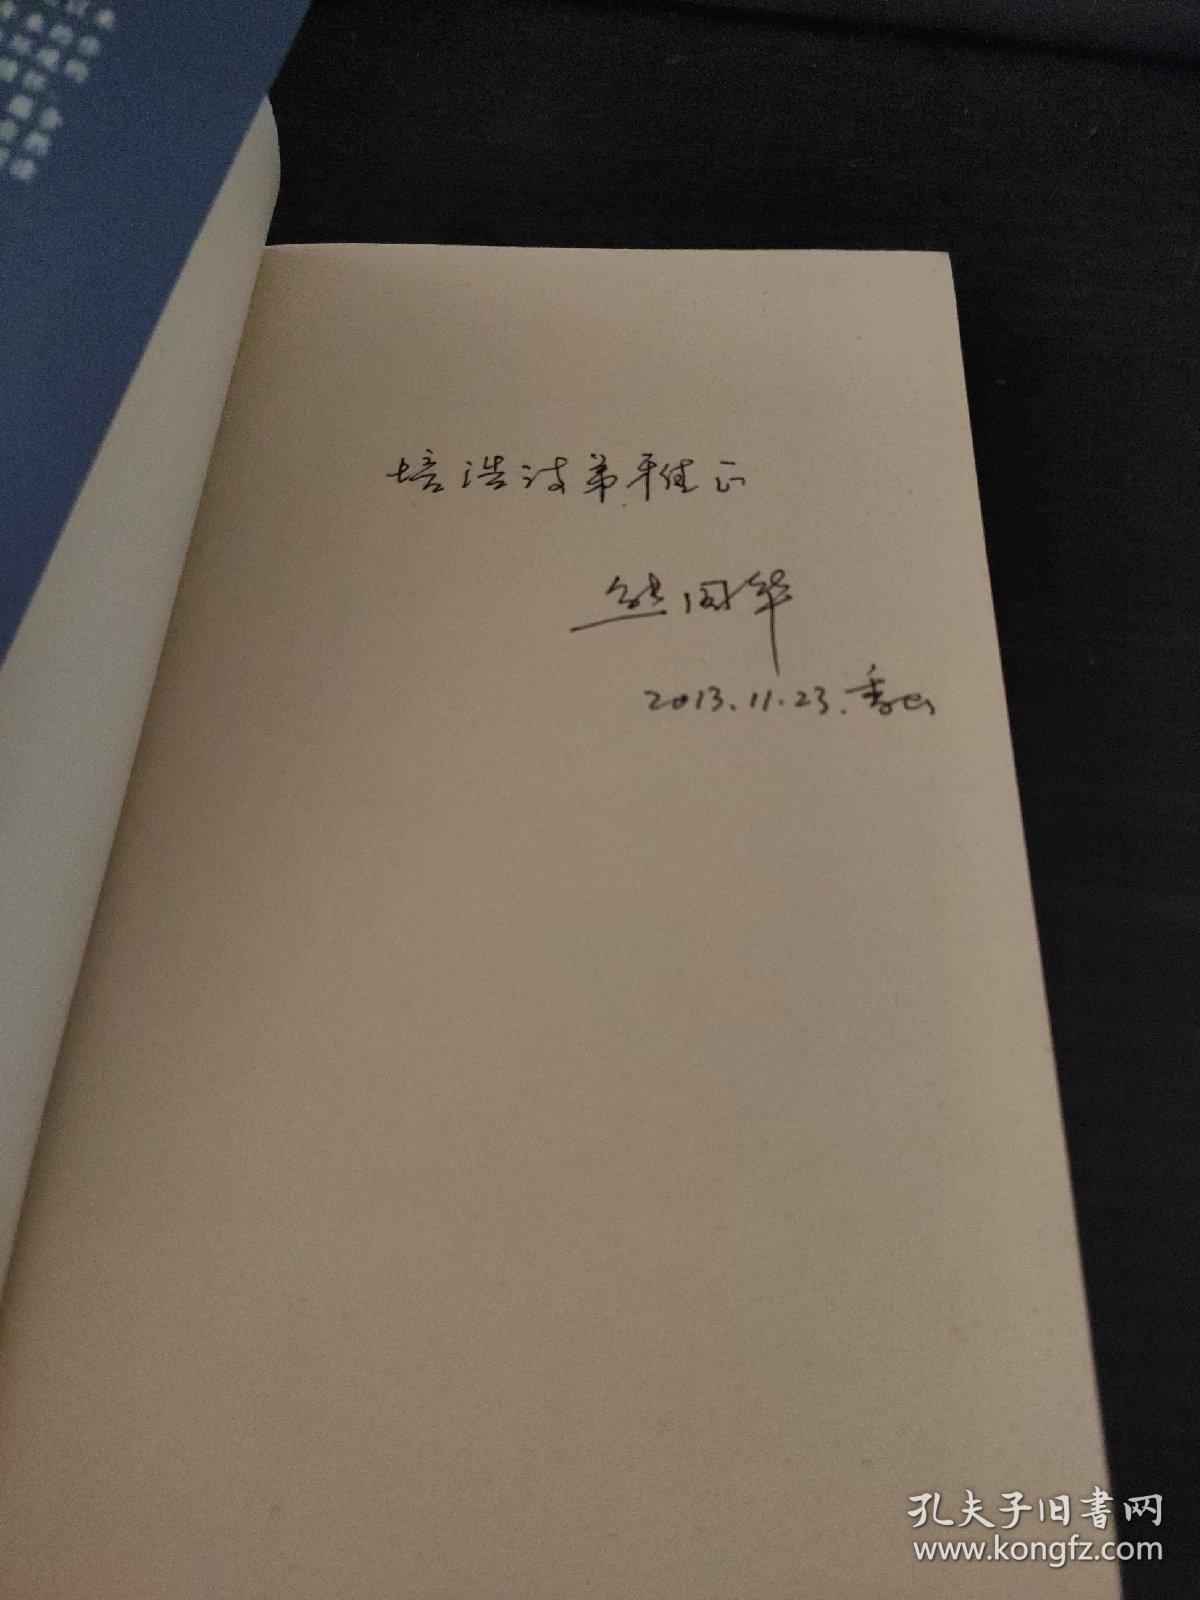 培浩诗弟雅正
熊国华
2013.11.23.香山
孔夫子旧书网
www.kongfz.com